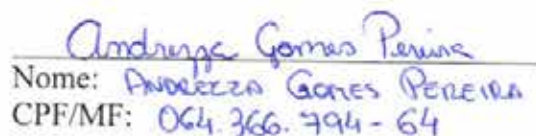 Andrezza Gomes Pereira
Nome: ANDREZZA GOMES PEREIRA
CPF/MF: 064.366.794-64